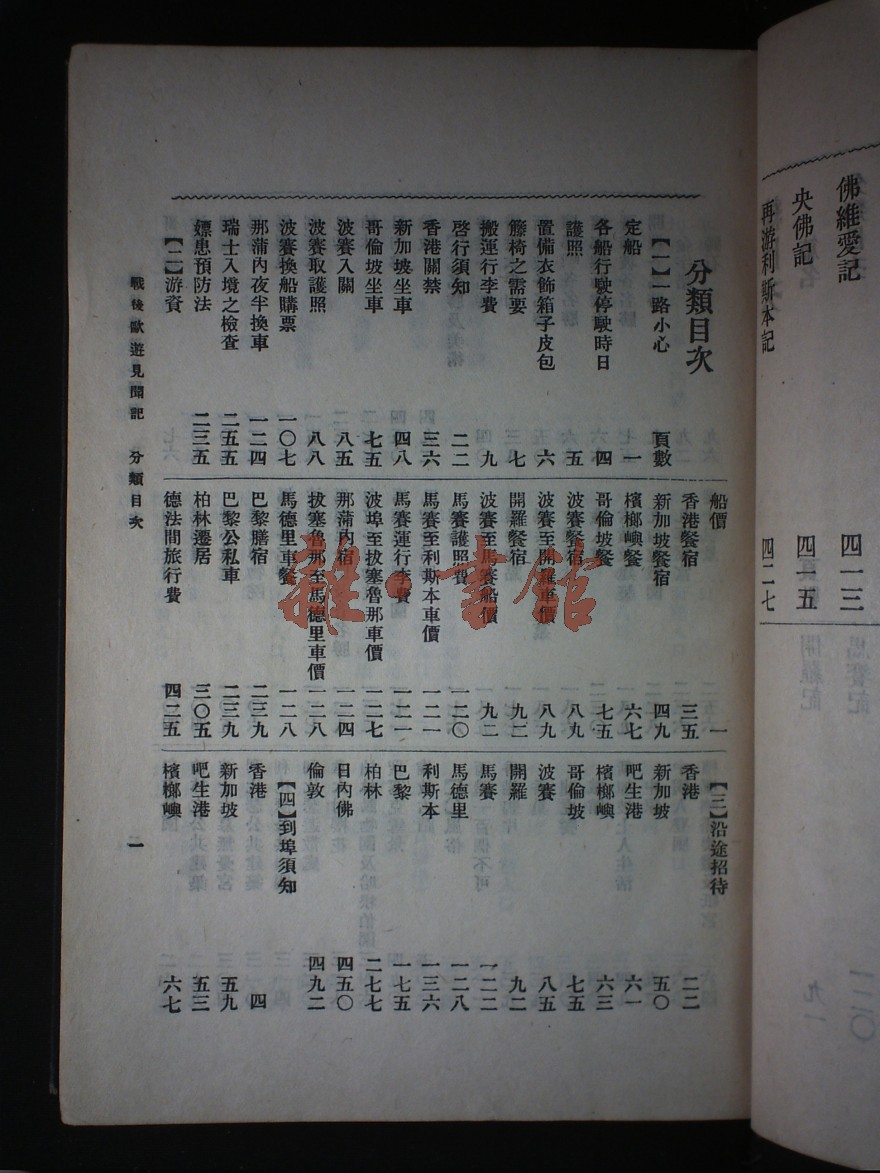 佛維愛記 四一三
央佛記 四一五
再游利斯本記 四二七
分類目次
【一】一路小心 頁數
定船 一
各船行駛停駛時日 四
護照 五
置備衣飾箱子皮包 六
籐椅之需要 七
搬運行李費 九
啓行須知 二二
香港關禁 三六
新加坡坐車 四八
哥倫坡坐車 七五
波賽入關 八五
波賽取護照 八八
波賽換船購票 一〇七
那蒲內夜半換車 一二四
瑞士入境之檢查 二五五
嫖患預防法 二三五
【二】游資
船價 一
香港餐宿 三五
新加坡餐宿 四九
檳榔嶼餐 六七
哥倫坡餐 七五
波賽餐宿 八九
波賽至開羅車價 八九
開羅餐宿 九二
波賽至馬賽船價 九二
馬賽護照費 一二〇
馬賽至利斯本車價 一二一
馬賽運行李費 一二一
波埠至拔塞魯那車價 一二七
那蒲內宿 一二四
拔塞魯那至馬德里車價 一二八
馬德里車餐 一二八
巴黎膳宿 二三九
巴黎公私車 二三九
柏林遷居 三〇五
德法間旅行費 四二五
【三】沿途招待
香港 二二
新加坡 五〇
吧生港 六一
檳榔嶼 六三
哥倫坡 七五
波賽 八五
開羅 九二
馬賽 一二二
馬德里 一二八
利斯本 一三六
巴黎 一七五
柏林 二七七
日內佛 四五〇
倫敦 四九二
【四】到埠須知
香港 四
新加坡 五九
吧生港 五三
檳榔嶼 六七
戰後歐遊見聞記 分類目次 一
雜·書館